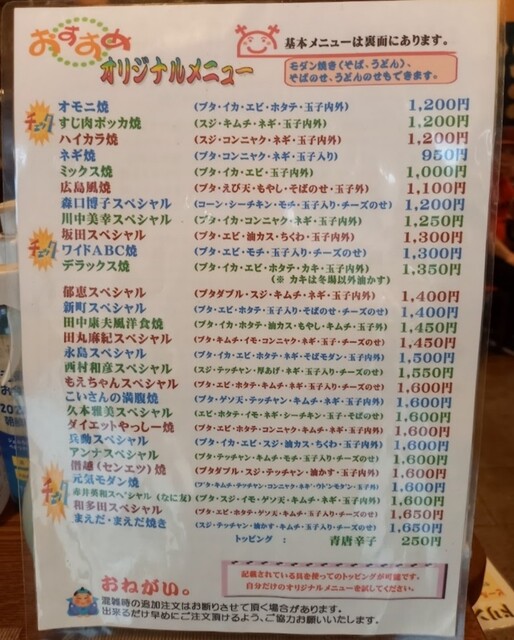 おすすめ
オリジナルメニュー
基本メニューは裏面にあります。
モダン焼き(そば、うどん)、
そばのせ、うどんのせもできます。
オモニ焼 (ブタ・イカ・エビ・ホタテ・玉子内外) 1,200円
チェック
すじ肉ポッカ焼 (スジ・キムチ・ネギ・玉子内外) 1,200円
ハイカラ焼 (スジ・コンニャク・ネギ・玉子内外) 1,200円
ネギ焼 (ブタ・コンニャク・ネギ・玉子入り) 950円
ミックス焼 (ブタ・イカ・エビ・玉子内外) 1,000円
広島風焼 (ブタ・えび天・もやし・そばのせ・玉子外) 1,100円
森口博子スペシャル (コーン・シーチキン・モチ・玉子入り・チーズのせ) 1,200円
川中美幸スペシャル (ブタ・イカ・コンニャク・ネギ・玉子内外) 1,250円
坂田スペシャル (ブタ・エビ・油カス・ちくわ・玉子内外) 1,300円
チェック
ワイドABC焼 (ブタ・エビ・モチ・玉子入り・チーズのせ) 1,300円
デラックス焼 (ブタ・イカ・エビ・ホタテ・カキ・玉子内外) 1,350円
(※ カキは冬場以外油かす)
郁恵スペシャル (ブタダブル・スジ・キムチ・ネギ・玉子内外) 1,400円
新町スペシャル (ブタ・エビ・ホタテ・玉子入り・そばのせ・チーズのせ) 1,400円
田中康夫風洋食焼 (ブタ・イカ・ホタテ・油カス・もやし・キムチ・玉子外) 1,450円
田丸麻紀スペシャル (ブタ・キムチ・イモ・コンニャク・玉子入り・チーズのせ) 1,450円
永島スペシャル (ブタ・イカ・エビ・ホタテ・ネギ・そばモダン・玉子内外) 1,500円
西村和彦スペシャル (スジ・テッチャン・厚あげ・ネギ・玉子入り・チーズのせ) 1,550円
もえちゃんスペシャル (ブタ・エビ・ホタテ・キムチ・ネギ・玉子入り・チーズのせ) 1,600円
こいさんの満腹焼 (ブタ・ゲソ天・テッチャン・キムチ・ネギ・玉子内外) 1,600円
久本雅美スペシャル (エビ・ホタテ・イモ・ネギ・シーチキン・玉子・そばのせ) 1,600円
ダイエットやっしー焼 (ブタ・エビ・ホタテ・キムチ・コンニャク・ネギ・玉子内外) 1,600円
兵動スペシャル (ブタ・イカ・エビ・スジ・油カス・ちくわ・玉子内外) 1,600円
アンナスペシャル (ブタ・テッチャン・キムチ・モチ・ネギ・玉子入り・チーズのせ) 1,600円
僭越(センエツ)焼 (ブタダブル・スジ・テッチャン・油かす・玉子内外) 1,600円
元気モダン焼 (ブタ・キムチ・テッチャン・コンニャク・ネギ・ウドンモダン・玉子内外) 1,600円
チェック
赤井英和スペシャル(なに友) (ブタ・スジ・イモ・ゲソ天・キムチ・ネギ・玉子内外) 1,600円
和多田スペシャル (ブタ・エビ・ホタテ・キムチ・モチ・玉子入り・チーズのせ) 1,650円
まえだ・まえだ焼き (スジ・テッチャン・油かす・キムチ・玉子入り・チーズのせ) 1,650円
トッピング : 青唐辛子 250円
おねがい。
記載されている具を使ってのトッピングが可能です。
自分だけのオリジナルメニューを試してください。
混雑時の追加注文はお断りさせて頂く場合があります。
出来るだけ早めにご注文頂けるよう、ご協力お願いいたします。